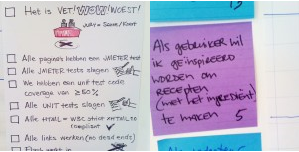 Het is VET! WOEST!
JURY = Score/Koort
Alle pagina's hebben een JMETER test
Alle JMETER tests slagen
We hebben een unit test code
coverage van > 80%
Alle UNIT tests slagen
Alle HTML = W3C strict XHTML 1.0
compliant
Alle links werken (no dead ends)
Als gebruiker wil
ik geïnspireerd
worden om
recepten
(met het ingrediënt)
te maken 5